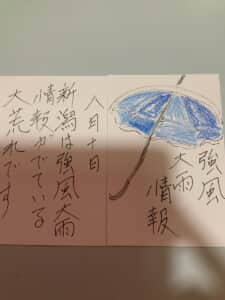 強風
大雨
情報
八月十日
新潟は強風大雨
情報がでている
大荒れです